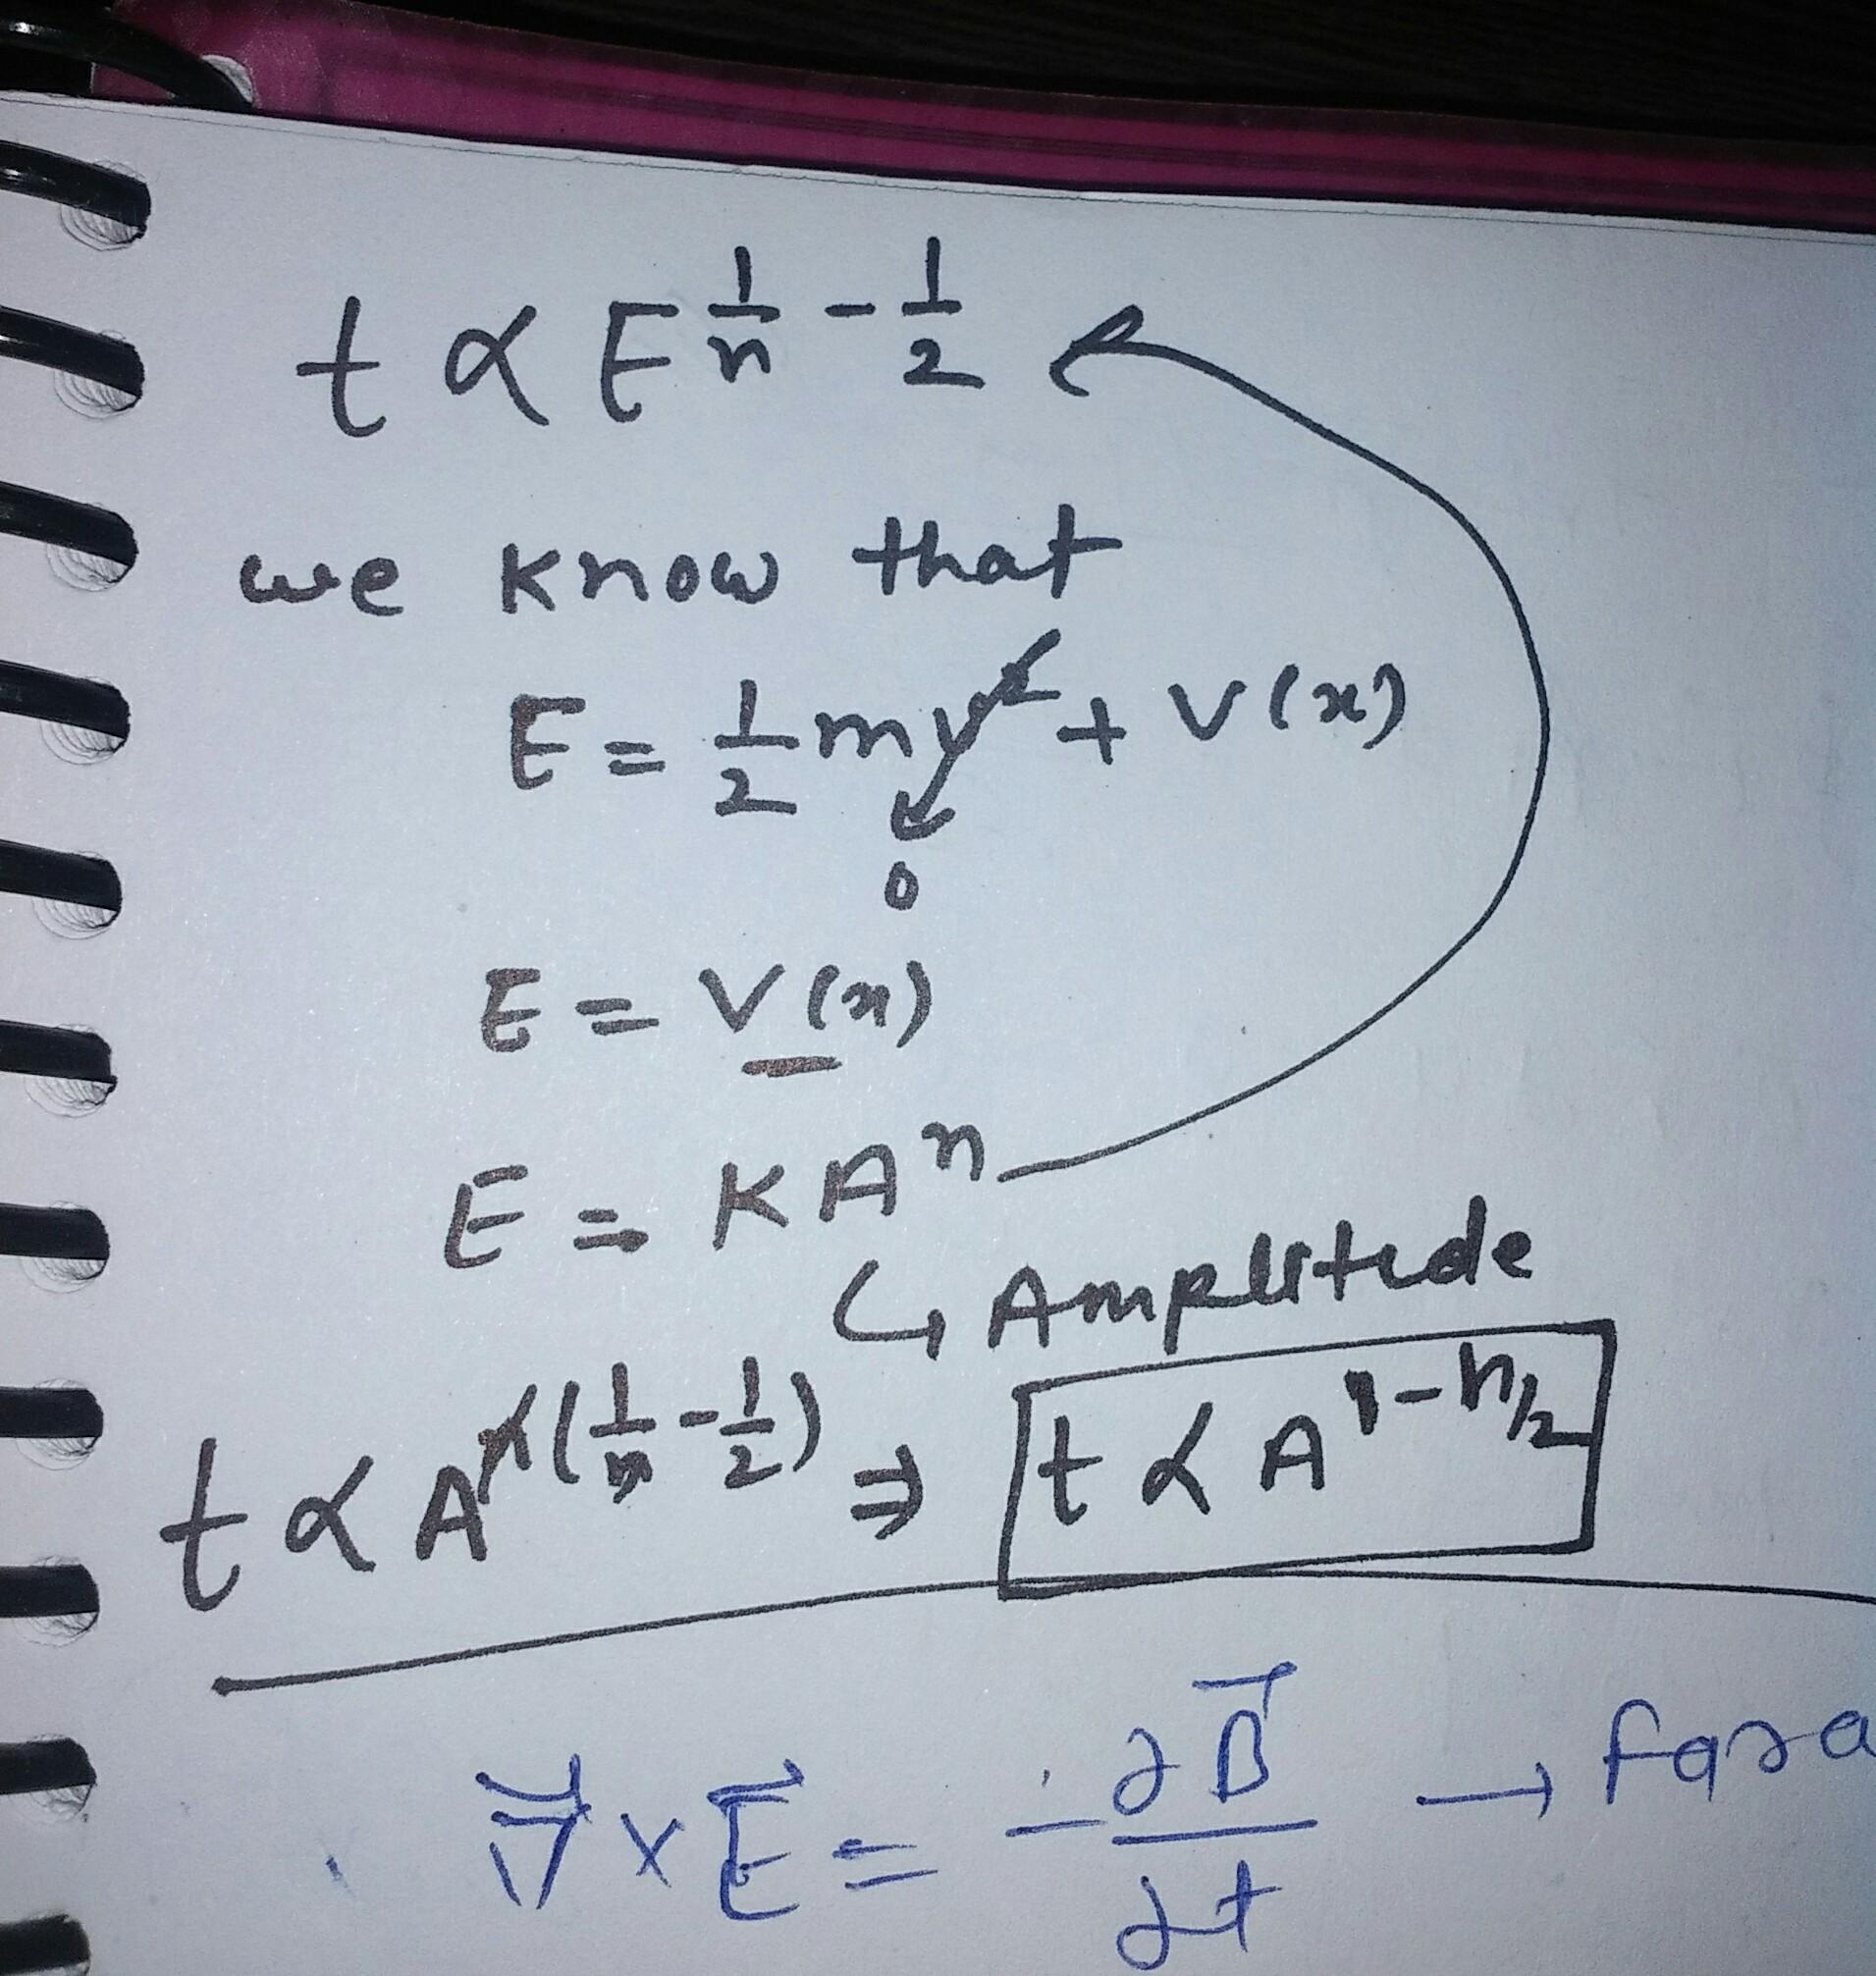 t ∝ E^(1/n - 1/2)
we know that
E = 1/2 mv² + V(x)
0
E = V(x)
E = KAⁿ
↳ Amplitude
t ∝ A^(n(1/n - 1/2)) ⇒ t ∝ A^(1-n/2)
∇⃗ × E⃗ = -∂B⃗/∂t → fara